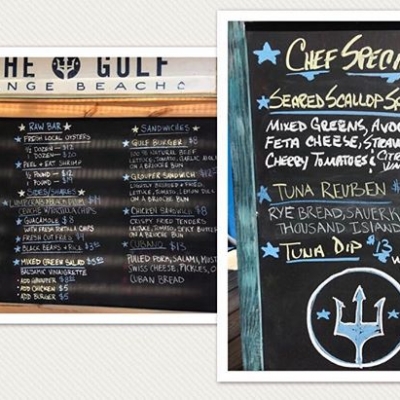 THE GULF
ORANGE BEACH
RAW BAR
FRESH LOCAL OYSTERS
½ DOZEN - $12
1 DOZEN - $20
PEEL + EAT SHRIMP
½ POUND - $12
1 POUND -
SIDES/SHARES
GUACAMOLE $8
WITH FRESH TORTILLA CHIPS
FRESH CUT FRIES $4
BLACK BEANS + RICE $3.95
MIXED GREEN SALAD
BALSAMIC VINAIGRETTE
ADD GROUPER
ADD CHICKEN $5
ADD BURGER $5
SANDWICHES
GULF BURGER $8
100% NATURAL BEEF
LETTUCE, TOMATO, GARLIC
ON A BRIOCHE BUN
GROUPER SANDWICH
LIGHTLY BREADED + FRIED,
LETTUCE, TOMATO
ON A BRIOCHE BUN
CHICKEN SANDWICH $8
CRISPY FRIED TENDERS
LETTUCE, TOMATO, SPICY BUTTER
ON A BRIOCHE BUN
CUBANO $13
PULLED PORK, SALAMI, MUST
SWISS CHEESE, PICKLES, O
CUBAN BREAD
CHEF SPECI
SEARED SCALLOP SA
MIXED GREENS, AVOC
FETA CHEESE, STRAW
CHERRY TOMATOES & CITRU
VIN
TUNA REUBEN $
RYE BREAD, SAUERK
THOUSAND ISLAND
TUNA DIP $13
W